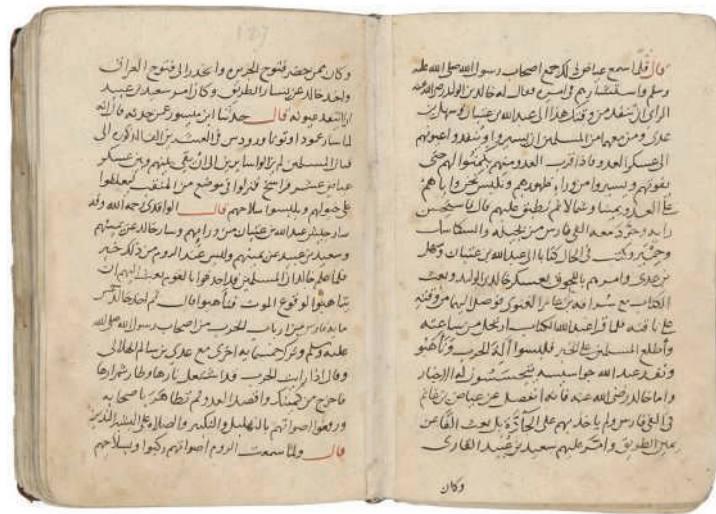 قال فلما سمع عياض ذلك جمع اصحاب رسول الله صلى الله عليه
وسلم واستشارهم في امره فقال له خالد بن الوليد رضي الله عنه
الراي ان تنفذ من وقتك هذا الى عبد الله بن عتبان وسهل بن
عدي ومن معهما من المسلمين ان يسيروا وتنفذوا عيونهم
الى عسكر العدو فاذا قرب العدو منهم يكمنوا لهم حتى
يفوتهم ويسيروا من وراء ظهورهم ونكبس نحن واياهم
على العدو يمينا وشمالا ثم نطبق عليهم قال فاستحسن
رايه وجرد معه الفي فارس من بجيلة والسكاسك
وحمير وكتب في الحال كتابا الى عبد الله بن عتبان وسهل
بن عدي وامرهم باللحوق بعسكر خالد بن الوليد وبعث
الكتاب مع سراقة بن عامر الغنوي فوصل اليهما من وقته
على ناقته فلما قرا عبد الله الكتاب ارتحل من ساعته
واطلع المسلمين على الخبر فلبسوا آلة الحرب وتاهبوا
ونفذ عبد الله جواسيسه يتجسسون له الاخبار
واما خالد رضي الله عنه فانه انفصل عن عياض بن غانم
في الفي فارس ولم ياخذ بهم على الجادة بل بعث الفا عن
يمين الطريق وامر عليهم سعيد بن عبيد القاري
وكان
127
وكان ممن حضر فتوح الجرس وانحدر الى فتوح العراق
واخذ خالد عن يسار الطريق وكان امر سعيد بن عبيد
ان ينفذ عيونه قال حدثنا ابن ميسور عن حدثه قال انه
لما سار عمود اوتونا ورودس في العشرين الف المذكورة الى
قتال المسلمين لم يزالوا سايرين الى ان بقي بينهم وبين عسكر
عياض عشر فراسخ فنزلوا في موضع من المنقب ليعلقوا
على خيولهم ويلبسوا سلاحهم قال الواقدي رحمه الله وقد
سار جيش عبد الله بن عتبان من ورايهم وسار خالد عن يمينهم
وسعيد بن عبيد عن يمينهم وليس عند الروم من ذلك خبر
فلما علم خالد ان المسلمين قد احدقوا بالقوم بعث اليهم ان
يتاهبوا لوقوع الموت فتاهبوا قال ثم اخذ خالد
ماية فارس من ارباب الحرب من اصحاب رسول الله صلى الله
عليه وسلم وترك خمسماية اخرى مع عدي بن سالم الهلالي
وقال اذا رايت الحرب قد اشتعل نارها وطار شرارها
فاخرج من كمينك واقصد العدو ثم تظاهر باصحابه
ورفعوا اصواتهم بالتهليل والتكبير والصلاة على البشير النذير
قال ولما سمعت الروم اصواتهم ركبوا وبسلاحهم